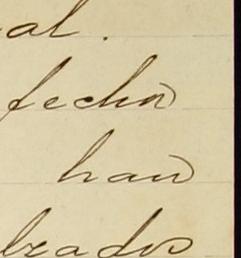 al.
fecha
han
lzados